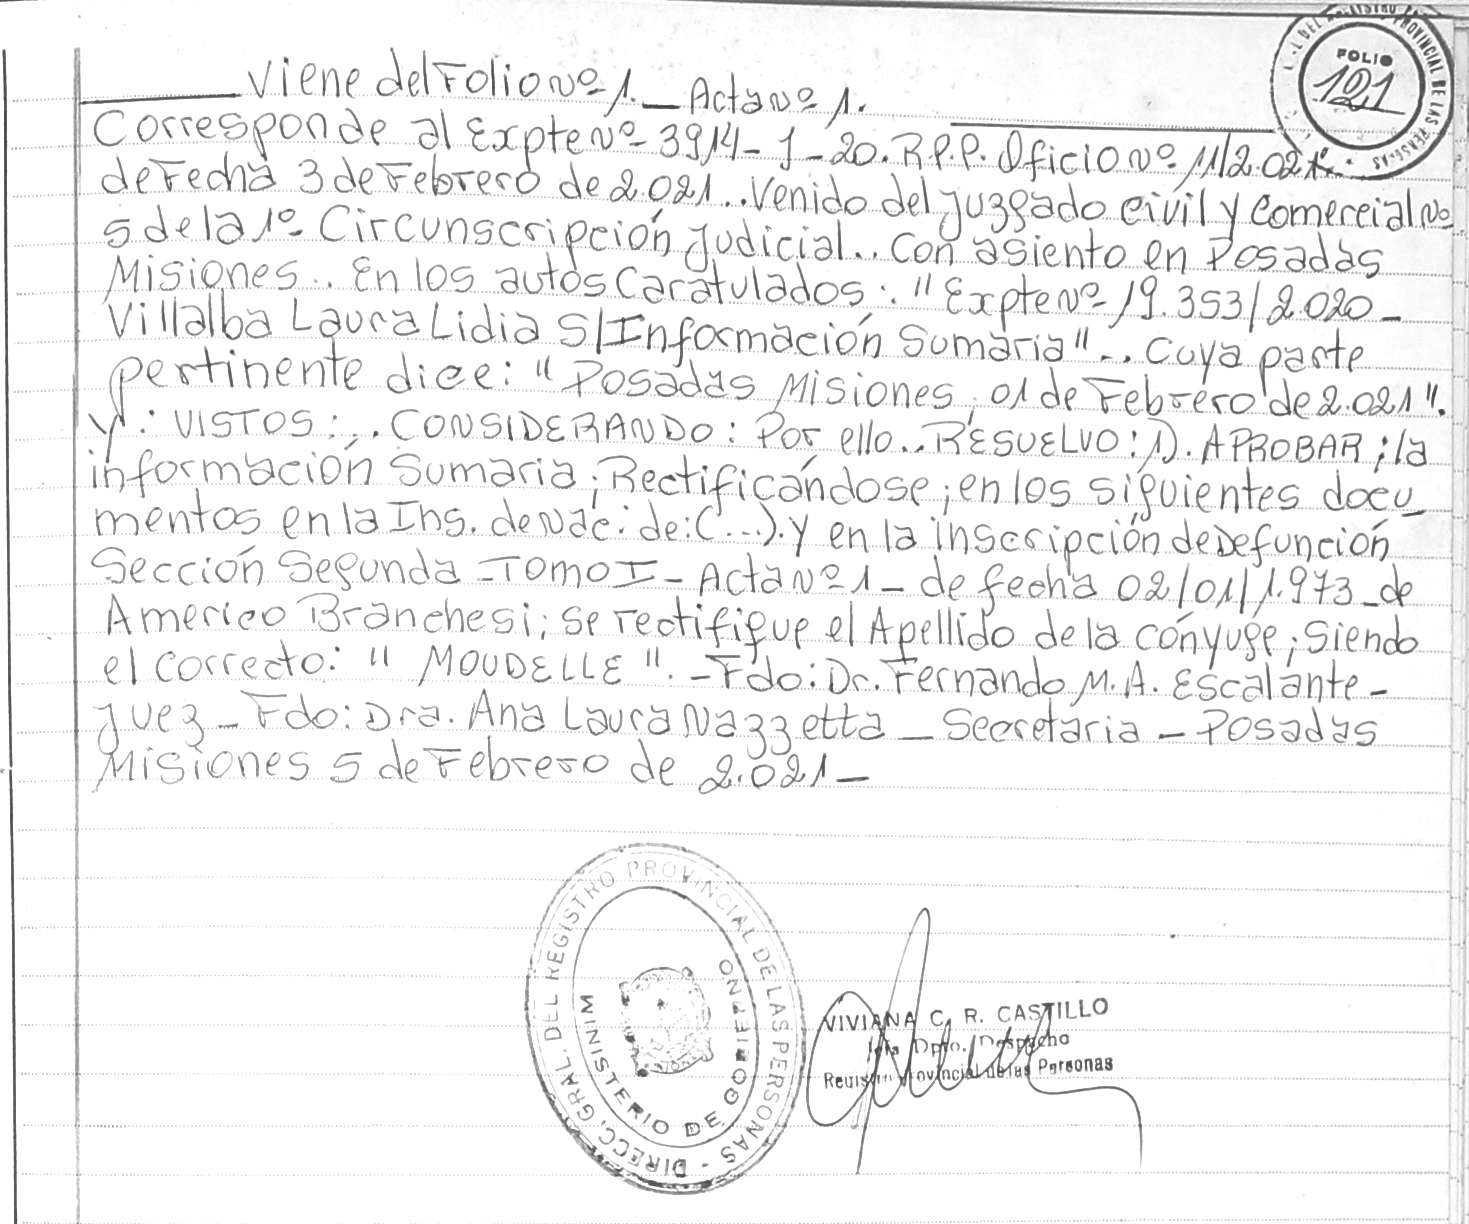 FOLIO
121
Viene del Folio Nº 1. — Acta Nº 1.
Corresponde al Expte Nº 3914-J-20. R.P.P. Oficio Nº 11/2.021.
de Fecha 3 de Febrero de 2.021.. Venido del Juzgado Civil y Comercial Nº
5 de la 1º Circunscripción Judicial.. Con asiento en Posadas
Misiones.. En los autos Caratulados: "Expte Nº 19.353/2.020-
Villalba Laura Lidia S/Información Sumaria".. Cuya parte
pertinente dice: "Posadas Misiones, 01 de Febrero de 2.021".
Y: VISTOS:,. CONSIDERANDO: Por ello.. RESUELVO: 1). APROBAR; la
información Sumaria; Rectificándose; en los siguientes docu
mentos en la Ins. de Nac: de: (...). y en la inscripción de Defunción
Sección Segunda - Tomo I - Acta Nº 1 - de fecha 02/01/1.973 - de
Americo Branchesi; se rectifique el Apellido de la cónyuge; Siendo
el Correcto: " MOUDELLE ". - Fdo: Dr. Fernando M. A. Escalante -
Juez - Fdo: Dra. Ana Laura Nazzetta - Secretaria - Posadas
Misiones 5 de Febrero de 2.021 -
DIRECC. GRAL. DEL REGISTRO PROVINCIAL DE LAS PERSONAS -
MINISTERIO DE GOBIERNO
VIVIANA C. R. CASTILLO
Jefa Dpto. Despacho
Registro Provincial de las Personas